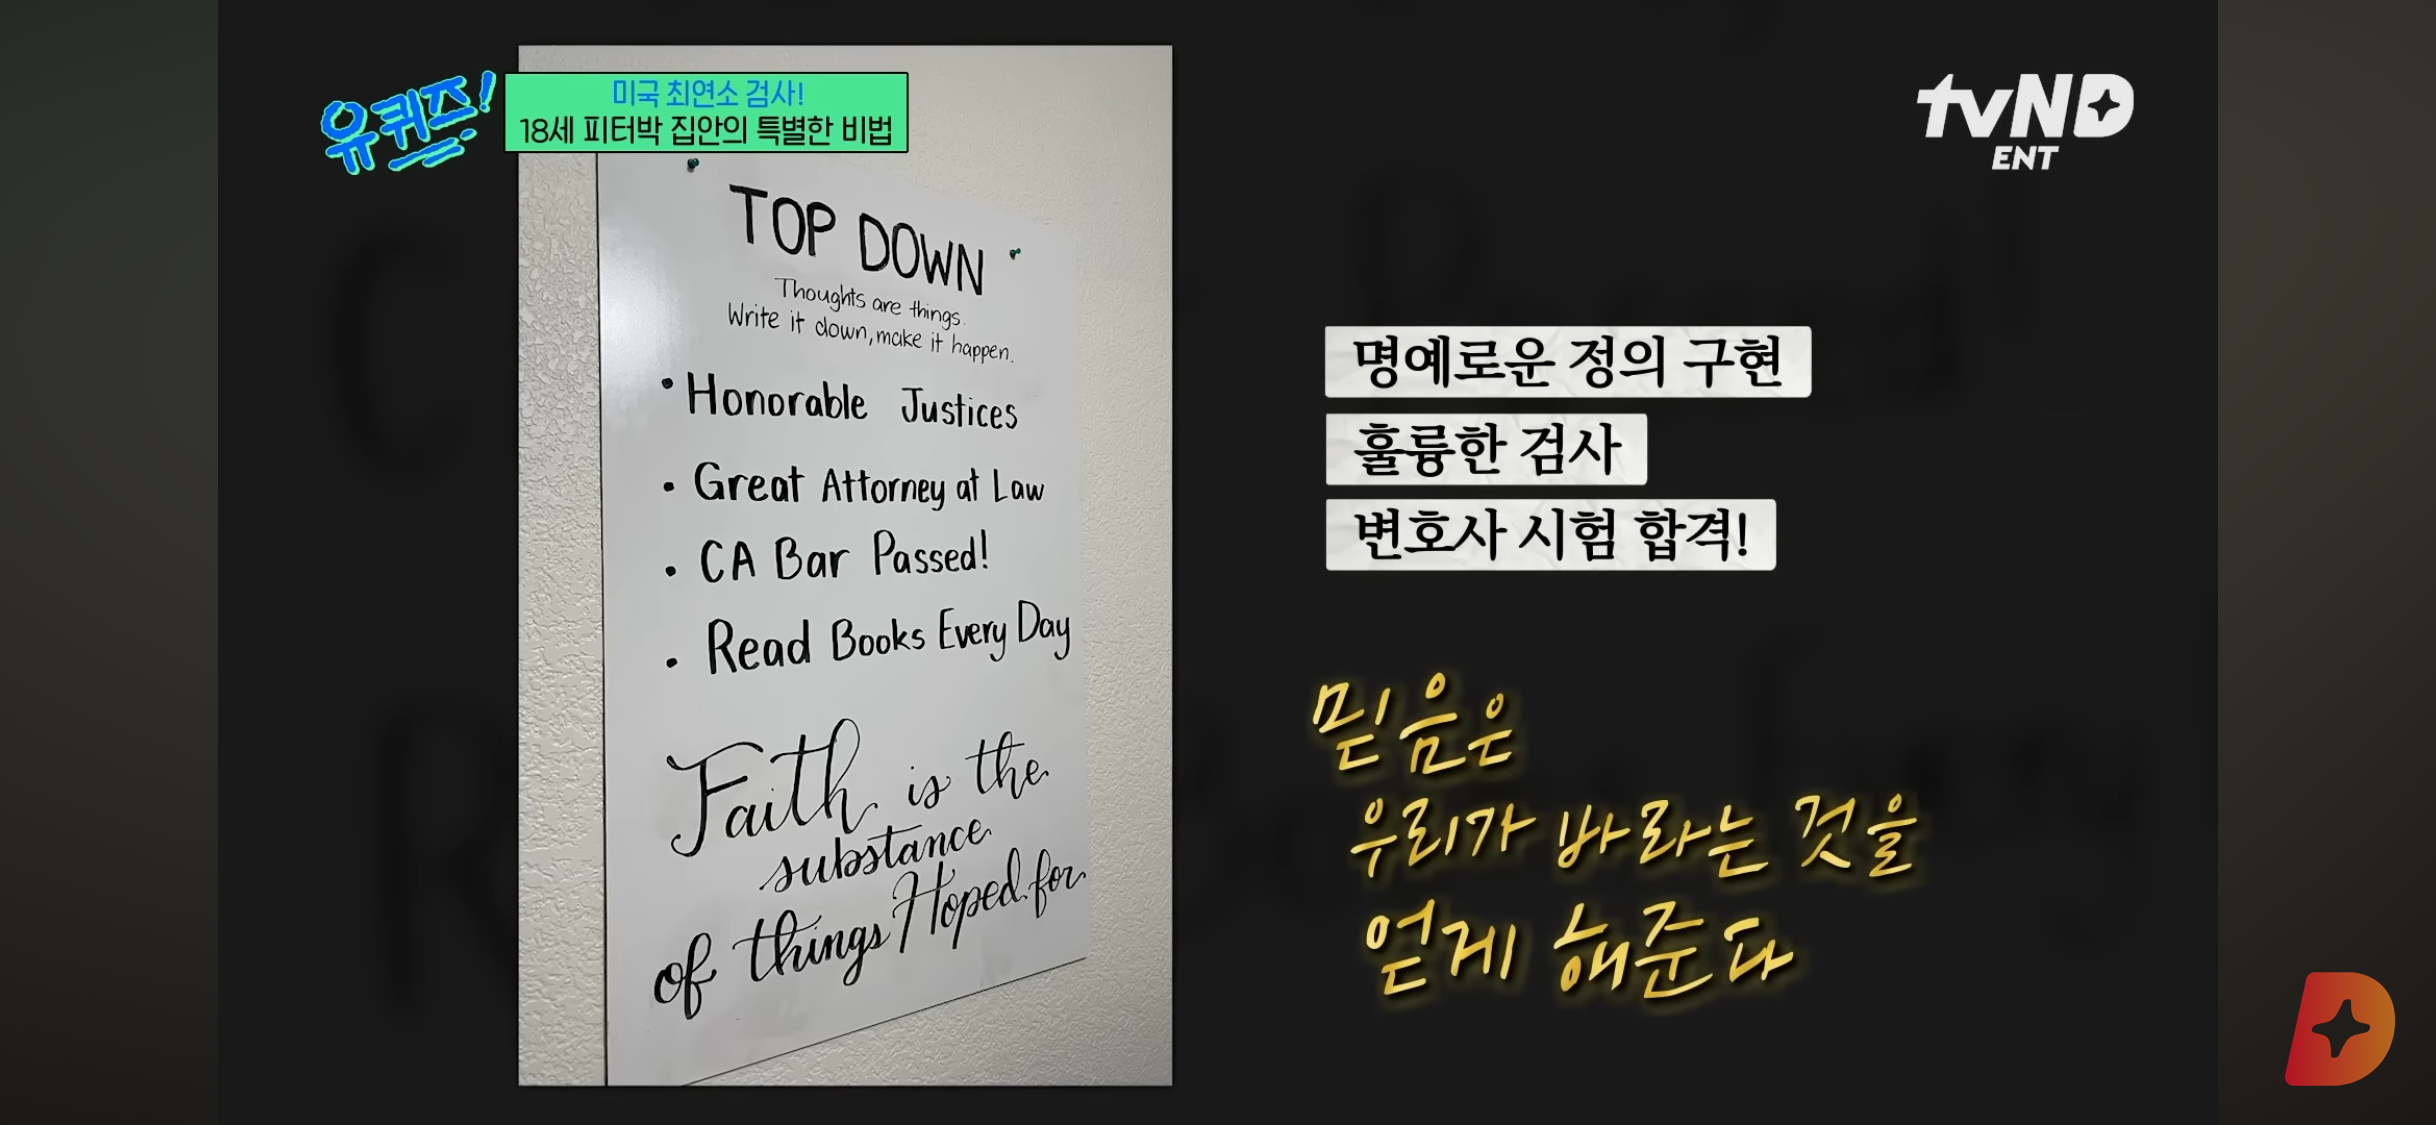 유퀴즈!
미국 최연소 검사!
18세 피터박 집안의 특별한 비법
tvND
ENT
TOP DOWN
Thoughts are things.
Write it down, make it happen.
• Honorable Justices
• Great Attorney at Law
• CA Bar Passed!
• Read Books Every Day
Faith is the
substance
of things Hoped for
명예로운 정의 구현
훌륭한 검사
변호사 시험 합격!
믿음은
우리가 바라는 것을
얻게 해준다
D